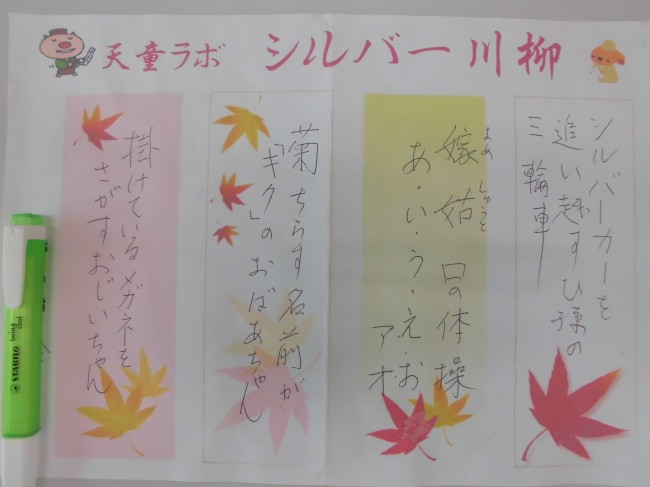 天童ラボ シルバー川柳
シルバーカーを
追い越すひ孫の
三輪車
嫁姑 口の体操
よめ しゅうとめ
あ・い・う・え・お
アオ
菊ちらす名前が
「キク」のおばあちゃん
掛けているメガネを
さがすおじいちゃん
STABILO